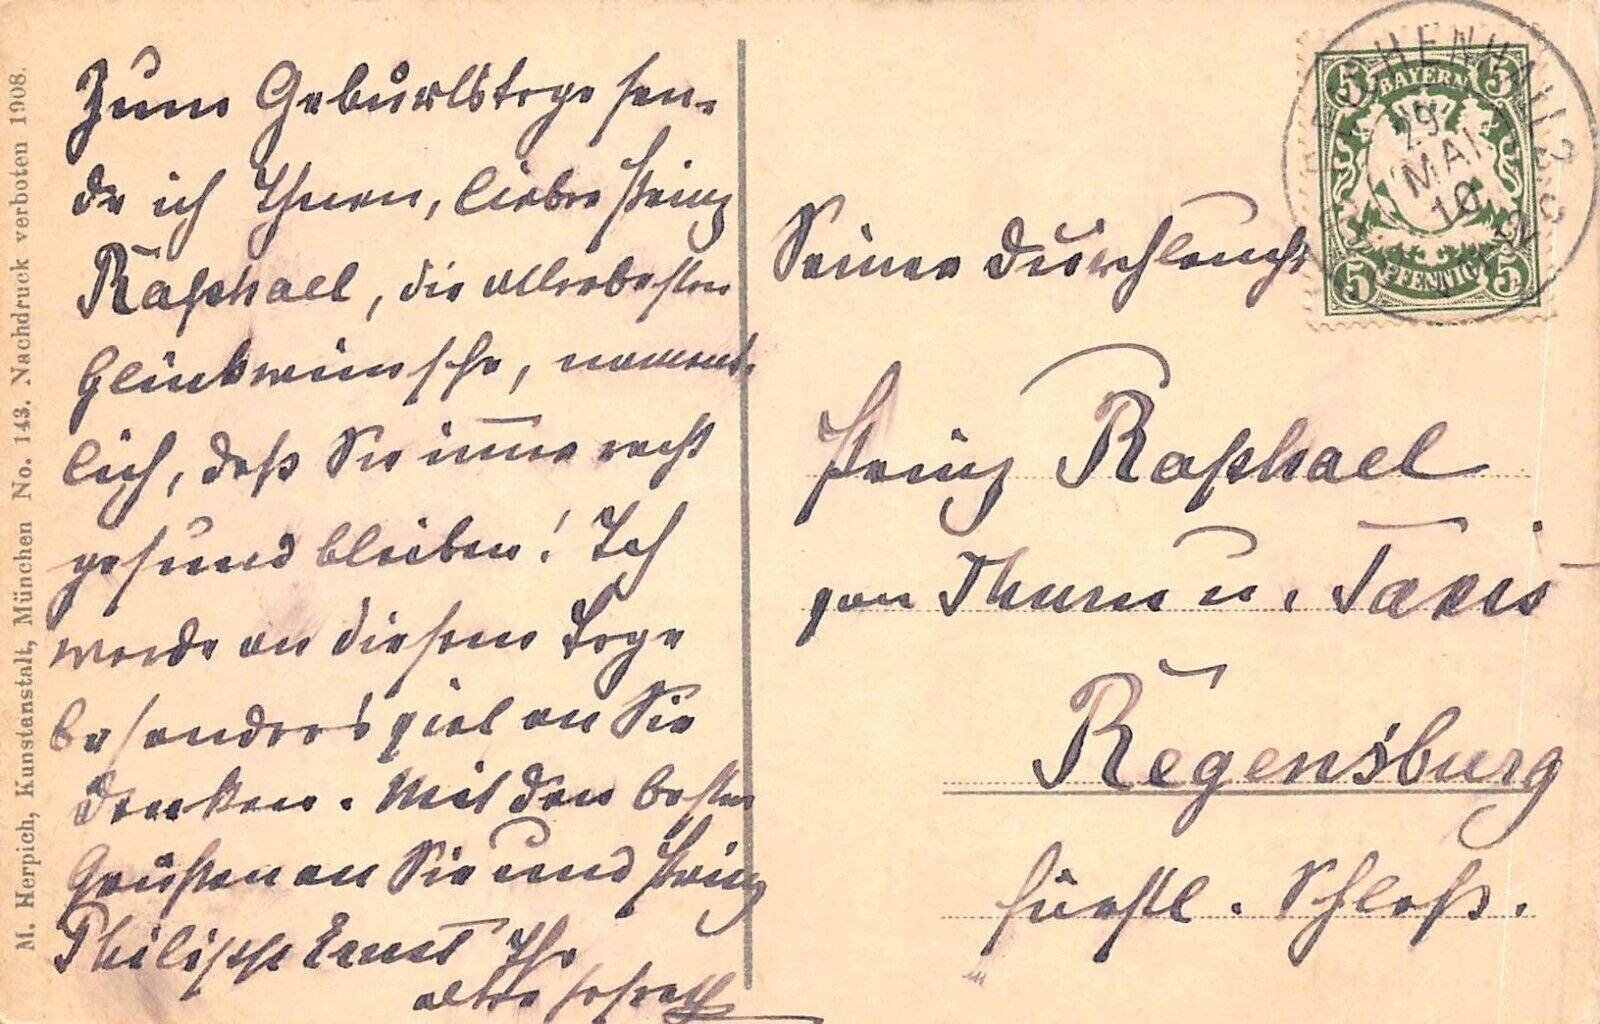 Zum Geburtstage sen-
de ich Ihnen, lieber Prinz
Raphael, die allerbesten
Glückwünsche, nament-
lich, daß Sie immer recht
gesund bleiben! Ich
werde an diesem Tage
besonders viel an Sie
denken. Mit den besten
Grüßen an Sie und Prinz
Philipp Ernst Ihr
alter
Seiner Durchlaucht
Prinz Raphael
von Thurn u. Taxis
Regensburg
fürstl. Schloß.
M. Herpich, Kunstanstalt, München No. 143. Nachdruck verboten 1908.
BAYERN
5 5
PFENNIG
5 5
REICHENHALL 2
29
MAI
10